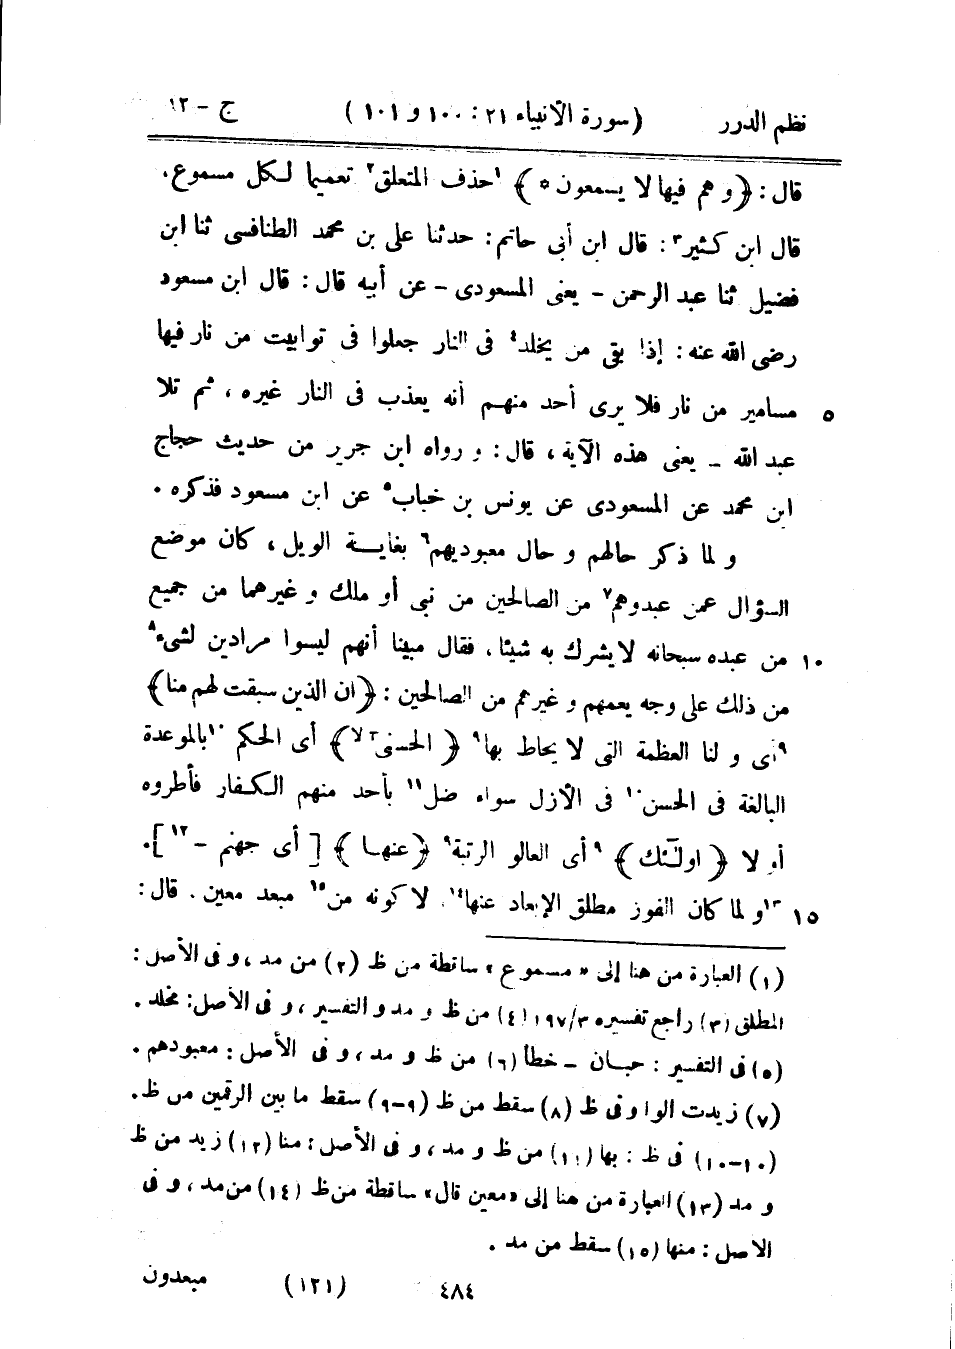 نظم الدرر (سورة الأنبياء ٢١ : ١٠٠ و ١٠١) ج - ١٢
قال : ﴿وهم فيها لا يسمعون ٥﴾ ١حذف المتعلق٢ تعميما لكل مسموع.
قال ابن كثير٣ : قال ابن أبى حاتم : حدثنا على بن محمد الطنافسى ثنا ابن
فضيل ثنا عبد الرحمن - يعنى المسعودى - عن أبيه قال : قال ابن مسعود
رضى الله عنه : إذا بقى من يخلد٤ فى النار جعلوا فى توابيت من نار فيها
مسامير من نار فلا يرى أحد منهم أنه يعذب فى النار غيره ، ثم تلا ٥
عبد الله - يعنى هذه الآية ، قال : و رواه ابن جرير من حديث حجاج
ابن محمد عن المسعودى عن يونس بن خباب٥ عن ابن مسعود فذكره .
و لما ذكر حالهم و حال معبوديهم٦ بغاية الويل ، كان موضع
السؤال عمن عبدوهم٧ من الصالحين من نبى أو ملك و غيرهما من جميع
من عبده سبحانه لا يشرك به شيئا ، فقال مبينا أنهم ليسوا مرادين لشىء٨ ١٠
من ذلك على وجه يعمهم و غيرهم من الصالحين : ﴿ان الذين سبقت لهم منا﴾
٩أى و لنا العظمة التى لا يحاط بها٩ ﴿الحسنى٢لا﴾ أى الحكم ١٠بالموعدة
البالغة فى الحسن١٠ فى الأزل سواء ضل١١ بأحد منهم الكفار فأطروه
أو لا ﴿اولٰٓئك﴾ ٩أى العالو الرتبة٩ ﴿عنها﴾ [ أى جهنم -١٢ ].
١٣و لما كان الفوز مطلق الإبعاد عنها١٤، لا كونه من١٥ مبعد معين . قال : ١٥
(١) العبارة من هنا إلى « مسموع » ساقطة من ظ (٢) من مد ، و فى الأصل :
المطلق (٣) راجع تفسيره ٣/١٩٧ (٤) من ظ و مد و التفسير ، و فى الأصل : مخلد .
(٥) فى التفسير : حبان - خطأ (٦) من ظ و مد ، و فى الأصل : معبودهم .
(٧) زيدت الواو فى ظ (٨) سقط من ظ (٩-٩) سقط ما بين الرقمين من ظ .
(١٠-١٠) فى ظ : بها (١١) من ظ و مد ، و فى الأصل : منا (١٢) زيد من ظ
و مد (١٣) العبارة من هنا إلى « معين قال » ساقطة من ظ (١٤) من مد ، و فى
الاصل : منها (١٥) سقط من مد .
٤٨٤ (١٢١) مبعدون